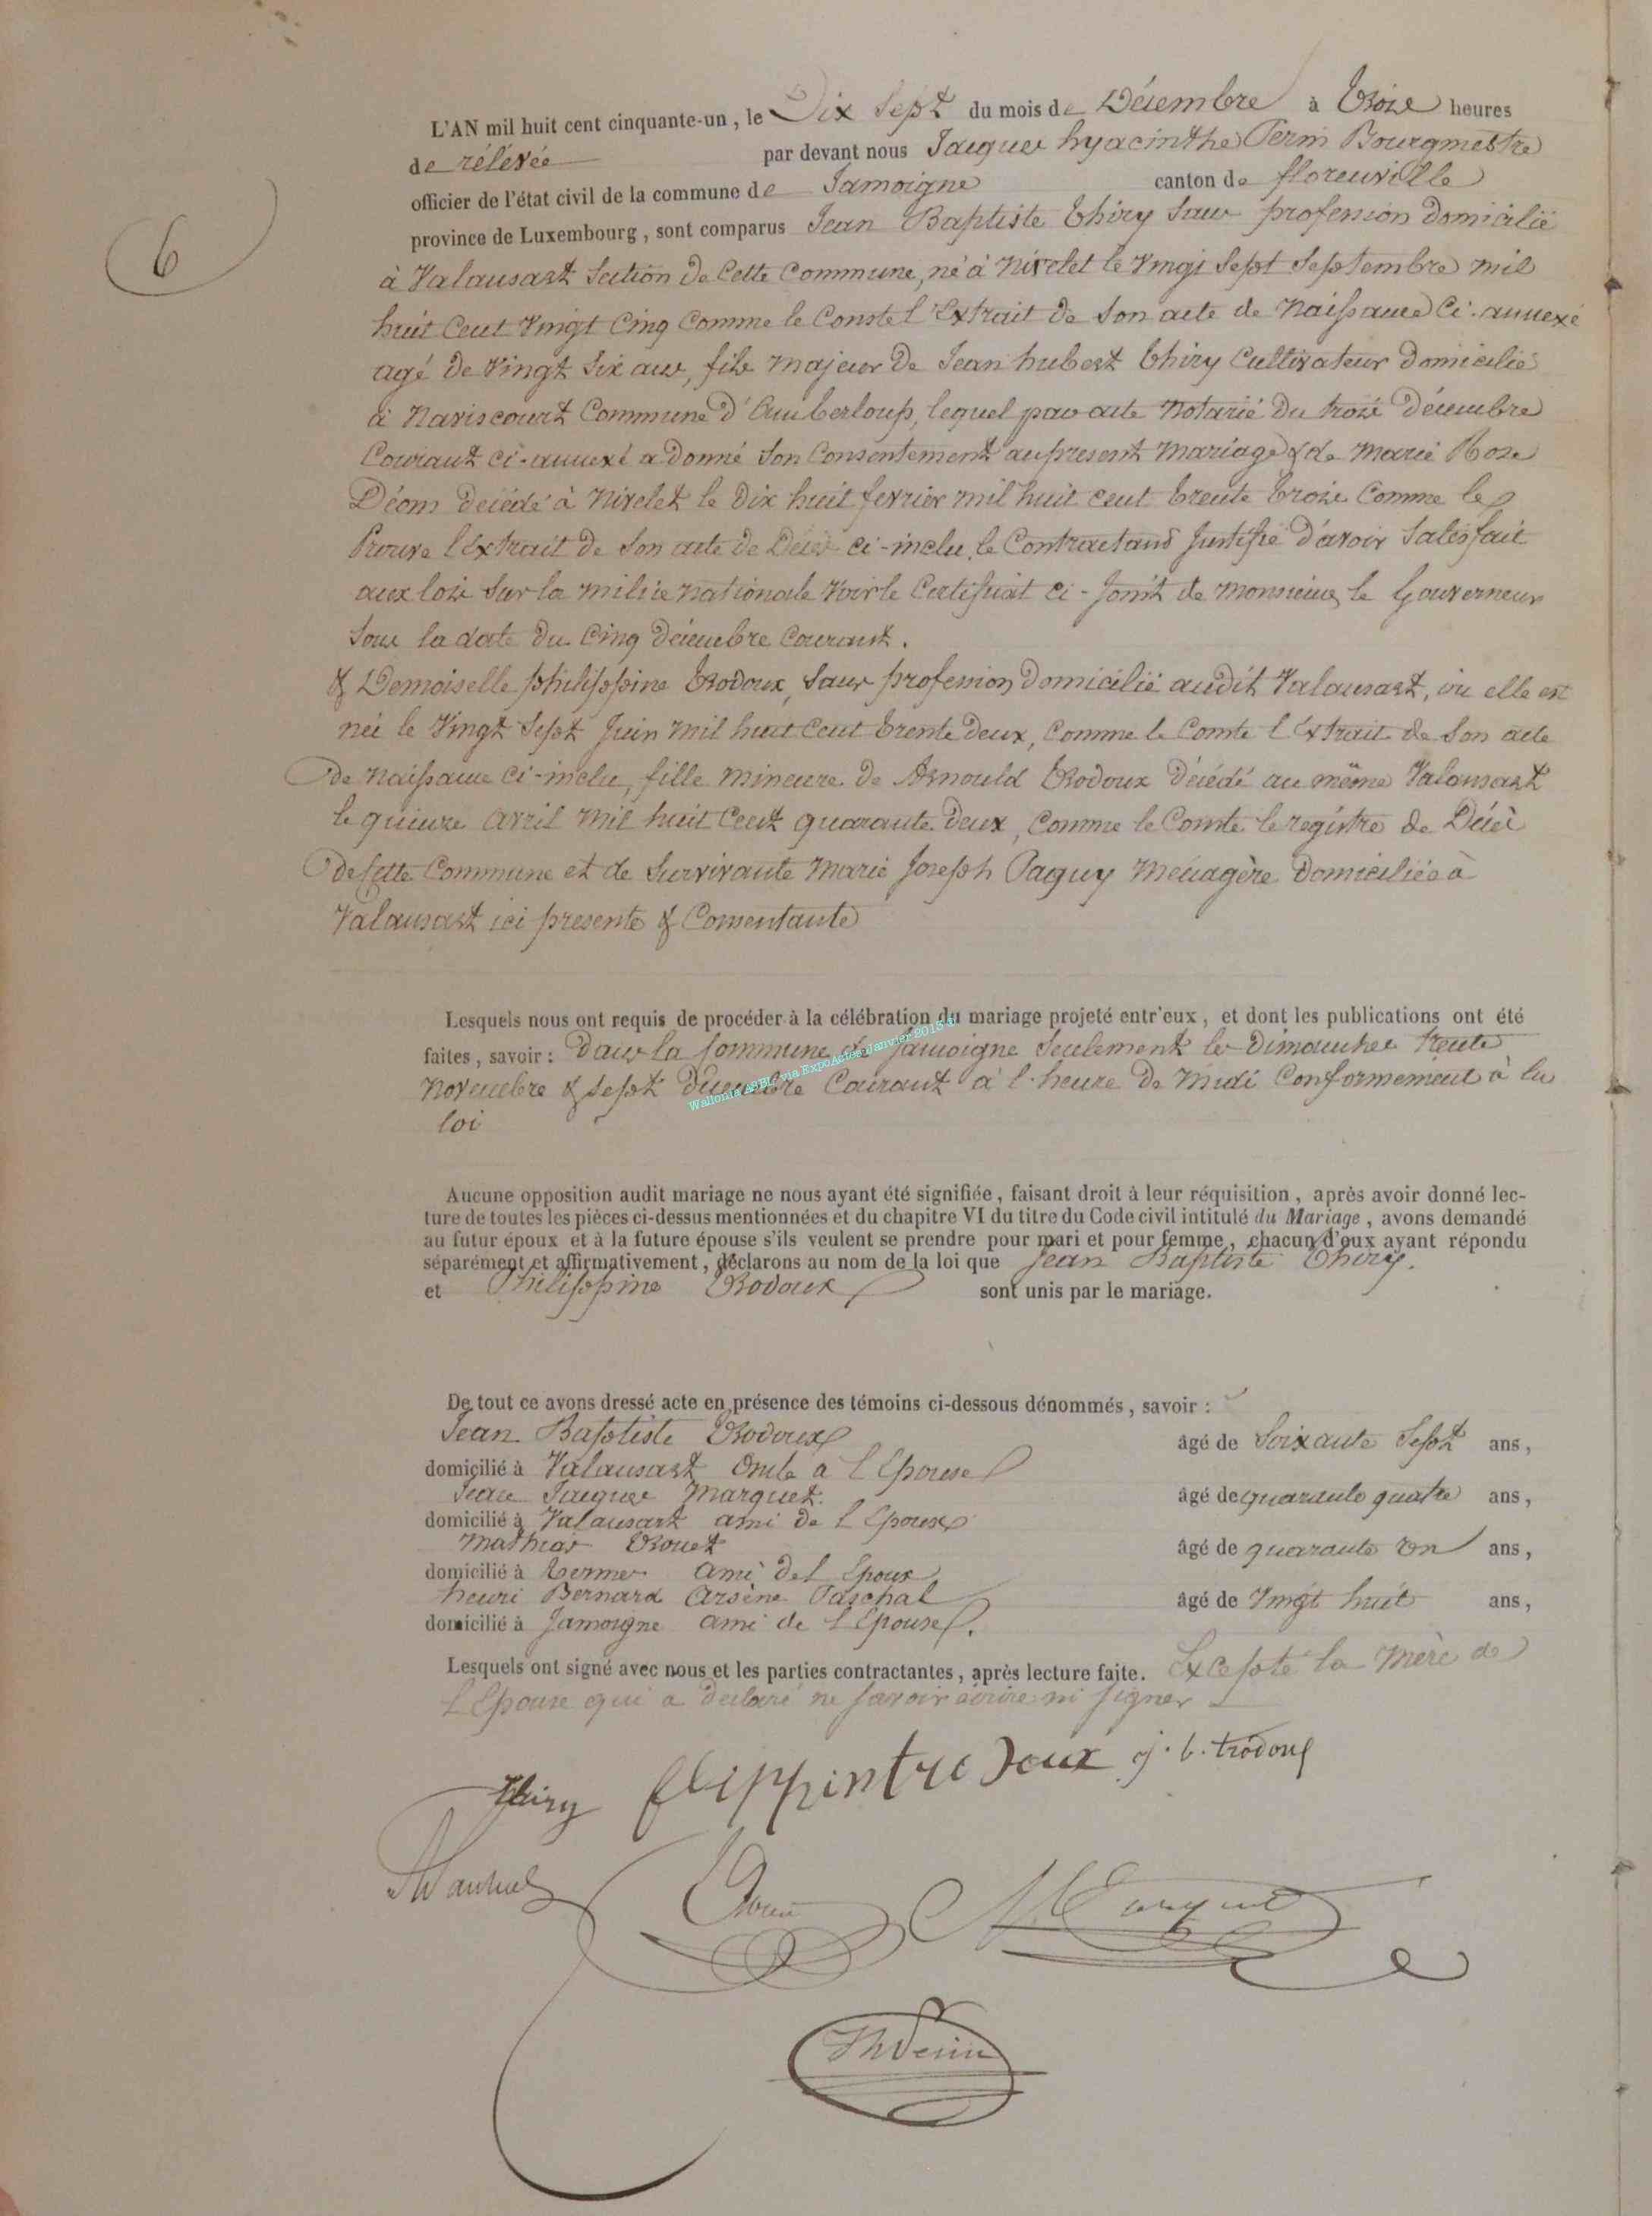 6
L'AN mil huit cent cinquante-un, le Dix Sept du mois de Décembre à trois heures
de rélévée par devant nous Jacques hyacinthe Perin Bourgmestre
officier de l'état civil de la commune de Jamoigne canton de florenville
province de Luxembourg, sont comparus Jean Baptiste Thiry Sans profession domicilié
à Valansart Section de Cette Commune, né à Nivelet le Vingt Sept Septembre mil
huit Cent Vingt Cinq Comme le Constel l'Extrait de Son acte de Naissance Ci-annexé
agé de Vingt Six ans, fils majeur de Jean hubert Thiry Cultivateur domicilié
à Naviscourt Commune d'Amberloup, lequel par acte Notarié du trois décembre
Courant ci-annexé a donné Son Consentement au present mariage & de Marie Rose
Déom decédé à Nivelet le dix huit fevrier mil huit cent trente trois Comme le
Prouve l'Extrait de Son acte de Décès ci-inclus, le Contractant Justifie d'avoir Satisfait
aux lois Sur la milice nationale Voir le Certificat ci-joint de monsieur le Gouverneur
Sous la date du Cinq décembre Courant.
& Demoiselle philippine Trodoux, Sans profession domicilié audit Valansart, ou elle est
née le Vingt Sept Juin mil huit Cent trente deux, Comme le Conste l'Extrait de Son acte
de Naissance ci-inclus, fille mineure de Arnould Trodoux décédé au même Valansart
le quinze avril mil huit Cent quarante deux, Comme le Conste le registre de Décès
de Cette Commune et de Survivante Marie Joseph Paquy Ménagère domiciliée à
Valansart ici presente & Consentante
Lesquels nous ont requis de procéder à la célébration du mariage projeté entr'eux, et dont les publications ont été
faites, savoir : dans la Commune de Jamoigne Seulement les Dimanches trente
Novembre & Sept décembre Courant à l'heure de midi Conformement à la
loi
Wallonia ASBL via ExpoActes Janvier 2018
Aucune opposition audit mariage ne nous ayant été signifiée, faisant droit à leur réquisition, après avoir donné lec-
ture de toutes les pièces ci-dessus mentionnées et du chapitre VI du titre du Code civil intitulé du Mariage, avons demandé
au futur époux et à la future épouse s'ils veulent se prendre pour mari et pour femme, chacun d'eux ayant répondu
séparément et affirmativement, déclarons au nom de la loi que Jean Baptiste Thiry.
et Philippine Trodoux sont unis par le mariage.
De tout ce avons dressé acte en présence des témoins ci-dessous dénommés, savoir :
Jean Baptiste Trodoux âgé de Soixante Sept ans,
domicilié à Valansart Oncle a l'Epouse
Jean Jacques Marquet. âgé de quarante quatre ans,
domicilié à Valansart ami de l'Epoux
Mathias Trouet âgé de quarante Un ans,
domicilié à Termes ami de l'Epoux
henri Bernard Arsène Paschal âgé de Vingt huit ans,
domicilié à Jamoigne ami de l'Epouse.
Lesquels ont signé avec nous et les parties contractantes, après lecture faite. Excepté la Mère de
l'Epouse qui a declaré ne Savoir écrire ni signer
Thiry flippintrodoux j. b. trodoux
Marquet
JhPerin